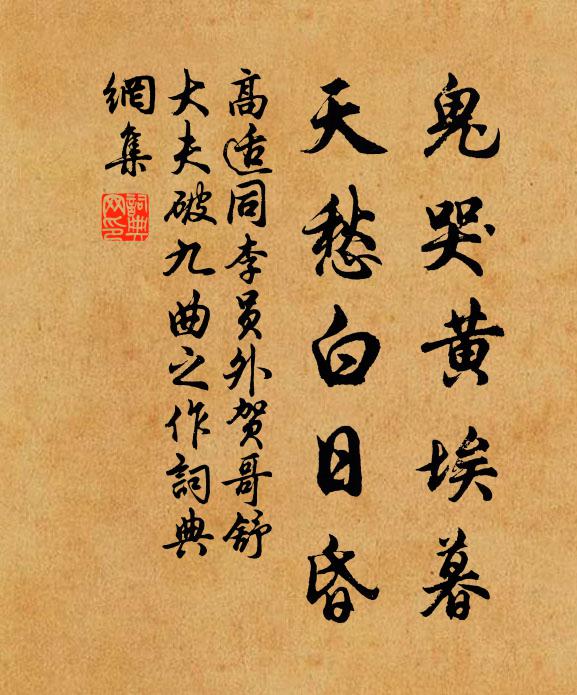 鬼哭黄埃暮
天愁白日昏
高适同李员外贺哥舒
大夫破九曲之作詞典
網集
詞典
网印